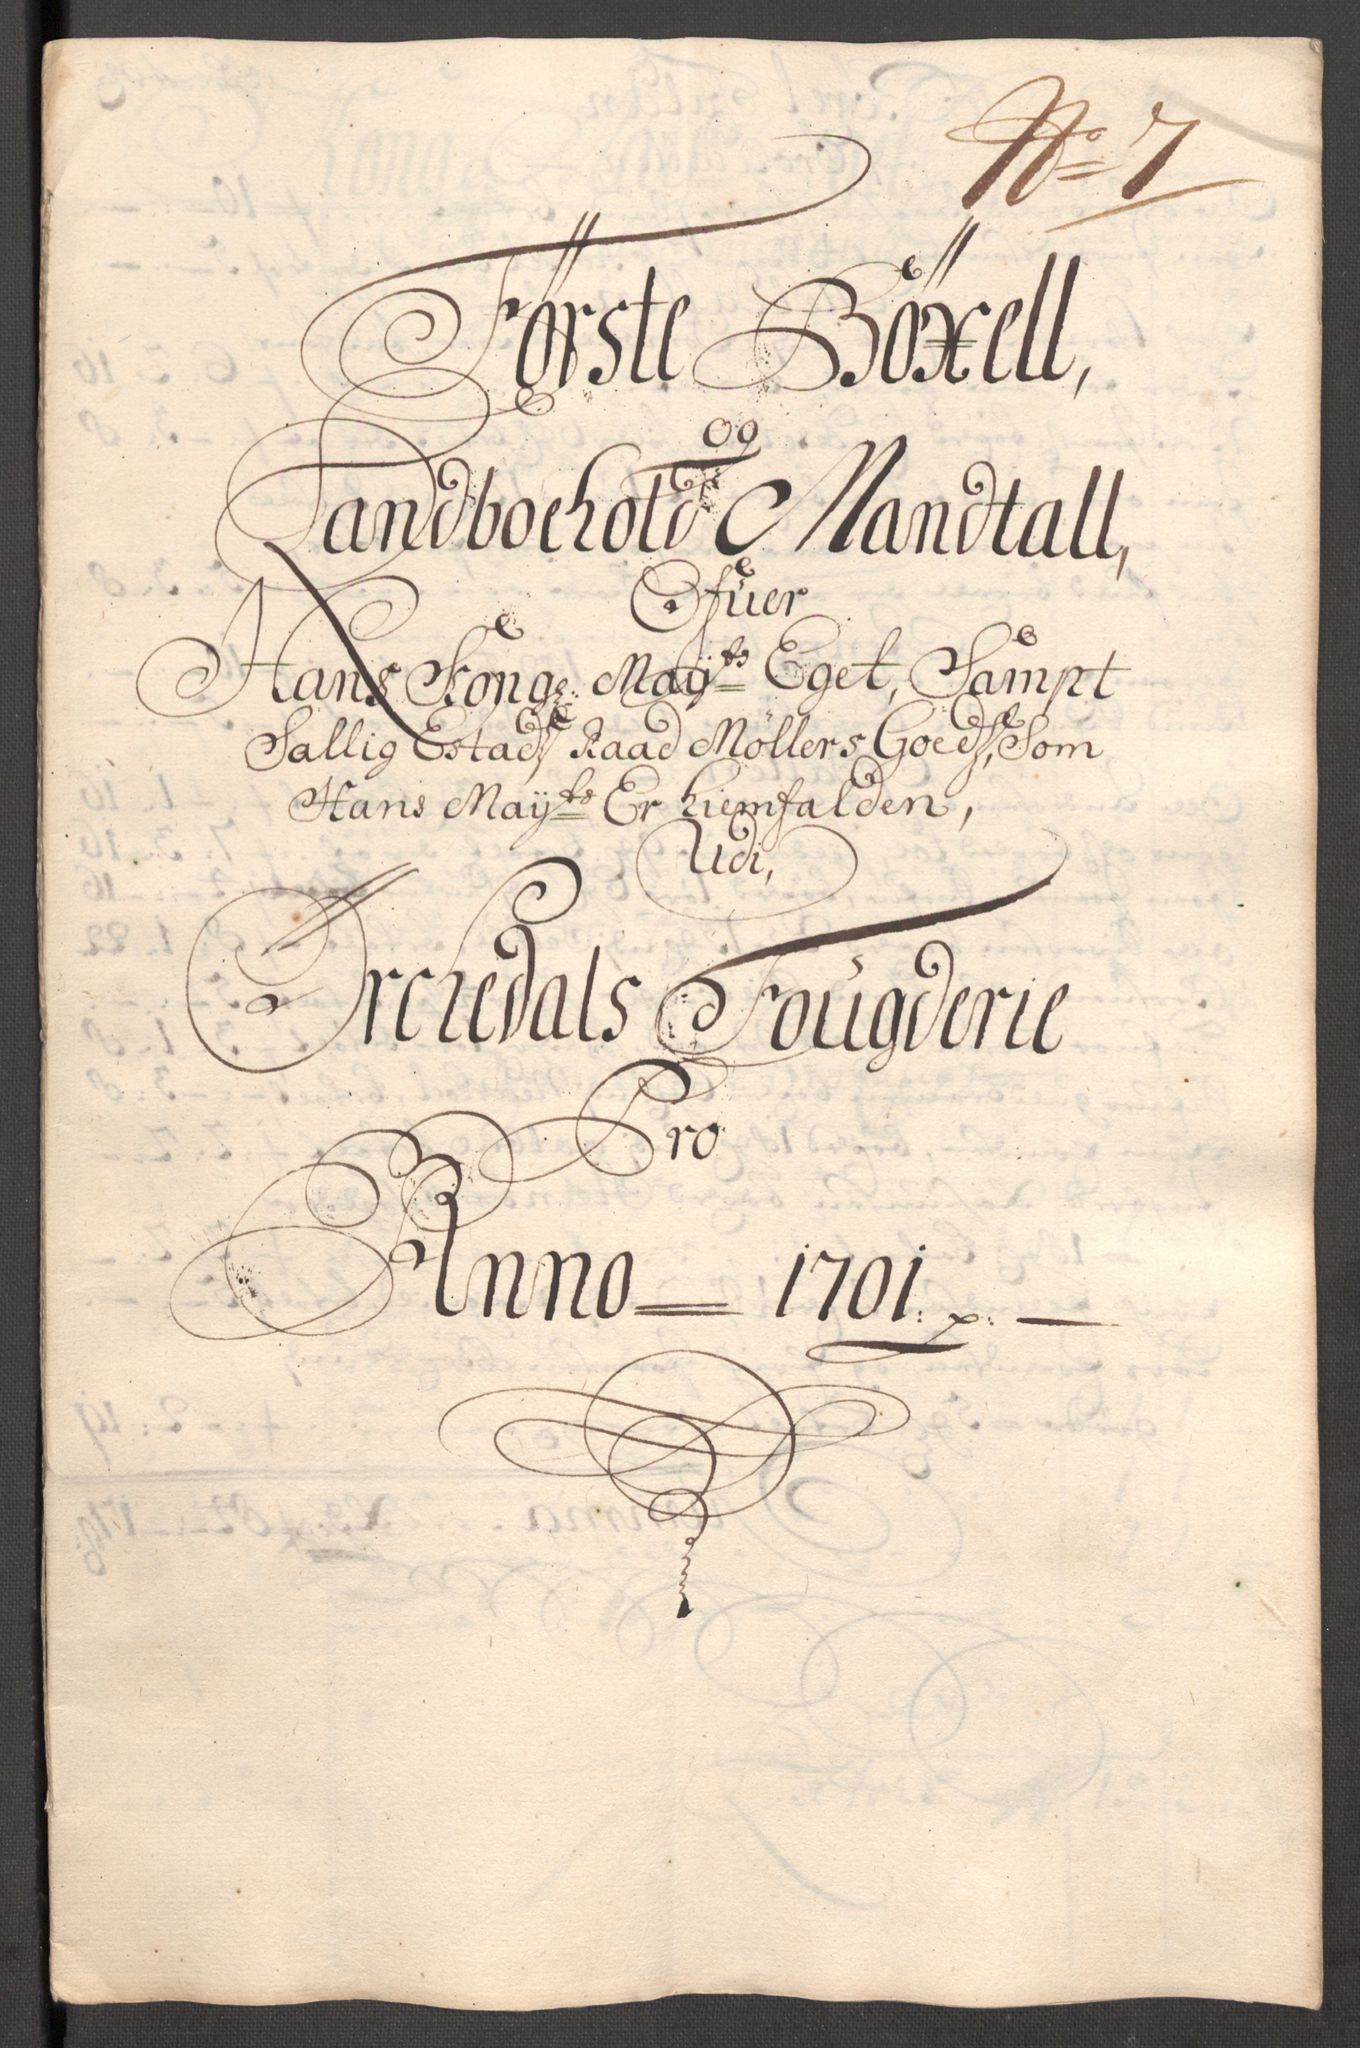 No 7
Første Böxell,
og
Landboehold Mandtall,
Ofŭer
Hans Kong: Mayts Eget, Sampt
Sallig Estads Raad Möllers Goeds, Som
Hans Mayts Er hiemfalden,
Udi,
Orchedals Fougderie
Pro
Anno 1701.